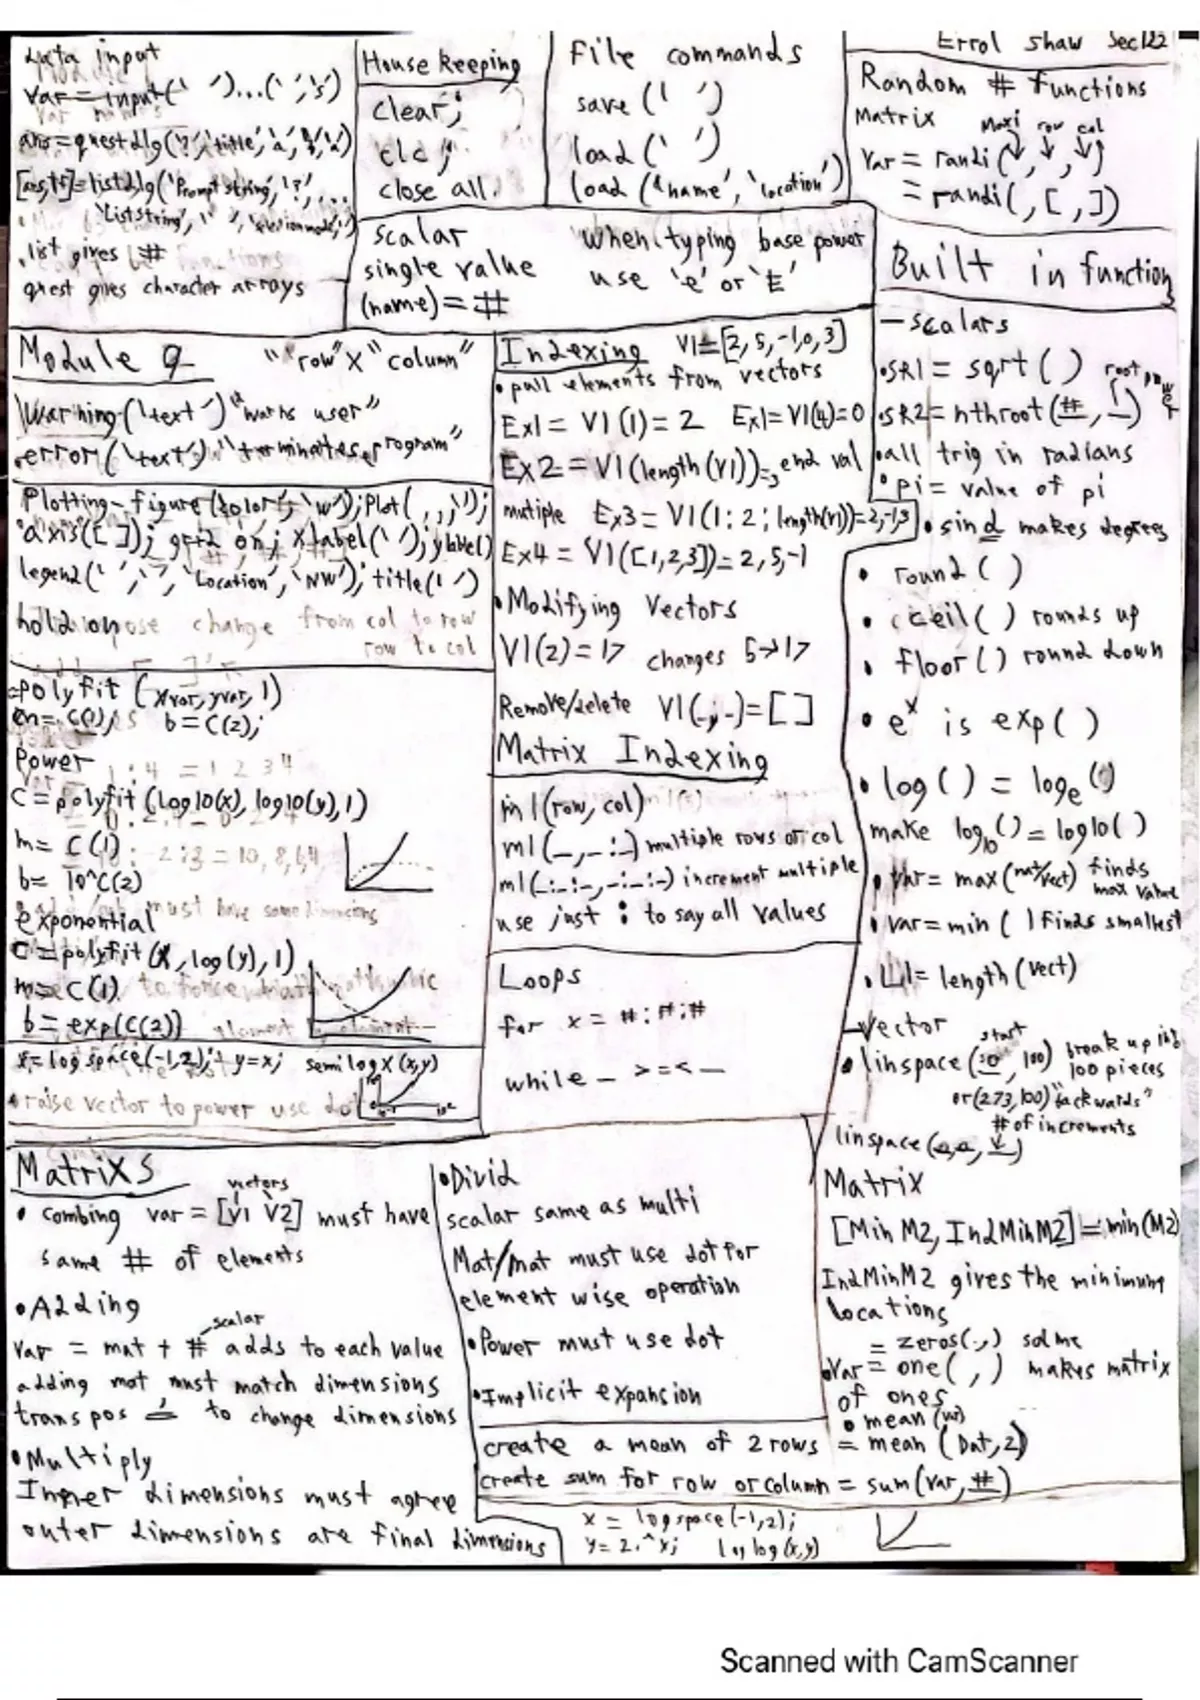 Errol Shaw Sec 122
data input
var = input(' ')...(' ','s')
ans = questdlg('?','title','a','b','a')
[ans,ts]=listdlg('Prompt string','?',...
'List string',' ','selectionmode','')
. list gives #
quest gives character arrays
House Keeping
clear;
clc;
close all.
File commands
save(' ')
load(' ')
load('name', 'location')
Random # functions
Matrix maxi row col
Var = randi( , , )
= randi( ,[ , ])
scalar
single value
(name) = #
when typing base power
use 'e' or 'E'
Built in functions
Module 9 "row" X "column"
Warning('text') "warns user"
.error('text') "terminates program"
Plotting - figure('color','w'); Plot( , , ' ');
'axis([ ]); grid on; xlabel(' '); ylabel()
legend(' ',' ', 'Location', 'NW'); title(' ')
hold on
change from col to row
row to col
=polyfit (xvar, yvar, 1)
m= C(1); b= C(2);
Power
C = polyfit (log10(x), log10(y), 1)
m= C(1)
b= 10^C(2)
must have same dimensions
exponential
C = polyfit (x, log(y), 1)
m= C(1)
b= exp(C(2))
x= logspace(-1,2); y=x; semilogx(x,y)
• raise vector to power use dot
Indexing V1=[2,5,-1,0,3]
• pull elements from vectors
Ex1 = V1(1) = 2 Ex1= V1(4)=0
Ex2 = V1(length(V1))=3 end val
mutiple Ex3 = V1(1:2:length(v1))=2,-1,3
Ex4 = V1([1,2,3])= 2,5,-1
• Modifying Vectors
V1(2)=17 changes 5→17
Remove/delete V1(_,_)=[]
Matrix Indexing
m1(row, col)
m1(_,_:_) multiple rows or col
m1(_:_:_,_:_:_) increment multiple
use just : to say all values
Loops
for x = #:#:#
while _ > = < _
- scalars
• SR1 = sqrt()
root power
• SR2= nthroot(#, _)
• all trig in radians
• pi = value of pi
• sind makes degrees
• round()
• ceil() rounds up
• floor() round down
• e^x is exp()
• log() = logₑ()
make log₁₀() = log10()
• Var= max(mat/vect) finds max value
• var= min( ) finds smallest
• L1= length(vect)
- Vector
start
• linspace(50, 100) break up into 100 pieces
or (273,100) "backwards"
# of increments
linspace(a,a,_)
Matrix
[MinM2, IndMinM2] = min(M2)
IndMinM2 gives the minimum
locations
= zeros(-,-) same
• Var = one( , ) makes matrix
of ones
• mean (var)
MatriXs
vectors
• combing var = [V1 V2] must have
same # of elements
• Adding
scalar
var = mat + # adds to each value
adding mat must match dimensions
transpos ' to change dimensions
• Multiply
Inner dimensions must agree
outer dimensions are final dimensions
• Divid
scalar same as multi
Mat/mat must use dot for
element wise operation
• Power must use dot
• Implicit expansion
create a mean of 2 rows = mean (Dat,2)
create sum for row or column = sum(var,#)
x = logspace(-1,2);
y= 2.^x; loglog(x,y)
Scanned with CamScanner